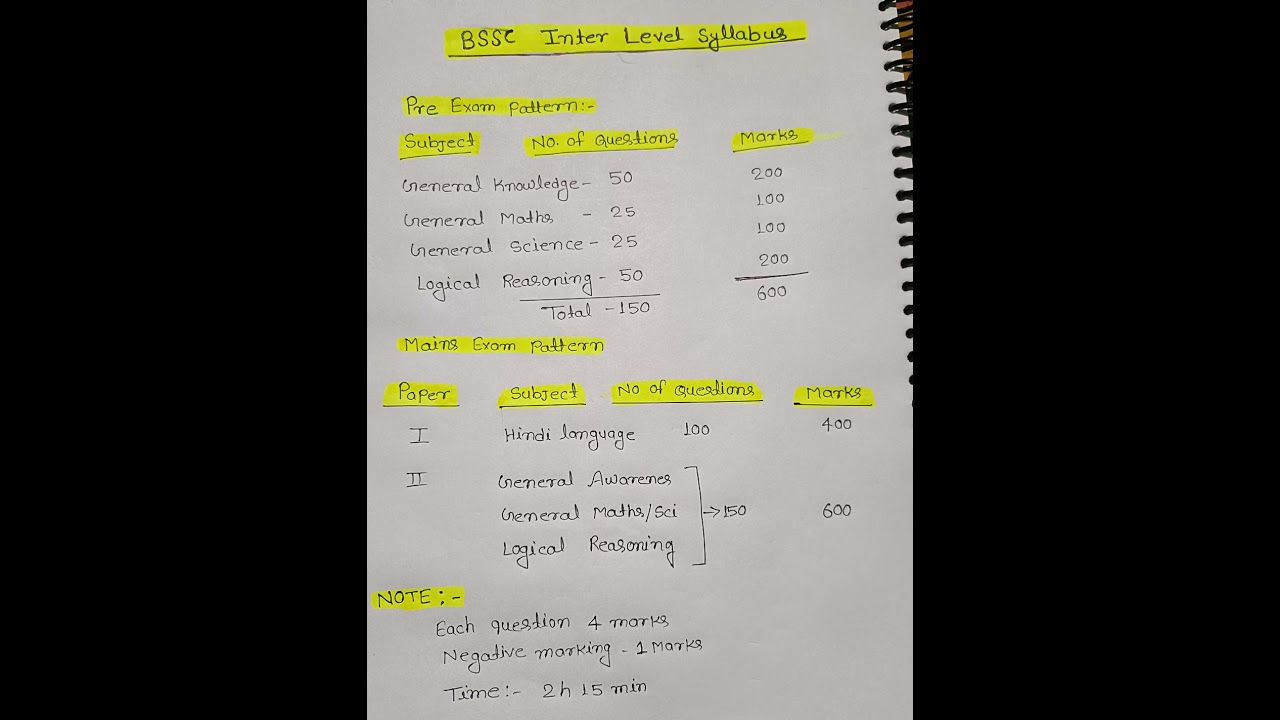 BSSC Inter Level Syllabus
Pre Exam Pattern:-
Subject No. of Questions Marks
General Knowledge - 50 200
General Maths - 25 100
General Science - 25 100
Logical Reasoning - 50 200
Total - 150 600
Mains Exam Pattern
Paper Subject No of Questions Marks
I Hindi language 100 400
II General Awarenes
General Maths/Sci → 150 600
Logical Reasoning
NOTE :-
Each question 4 marks
Negative marking - 1 Marks
Time:- 2h 15 min